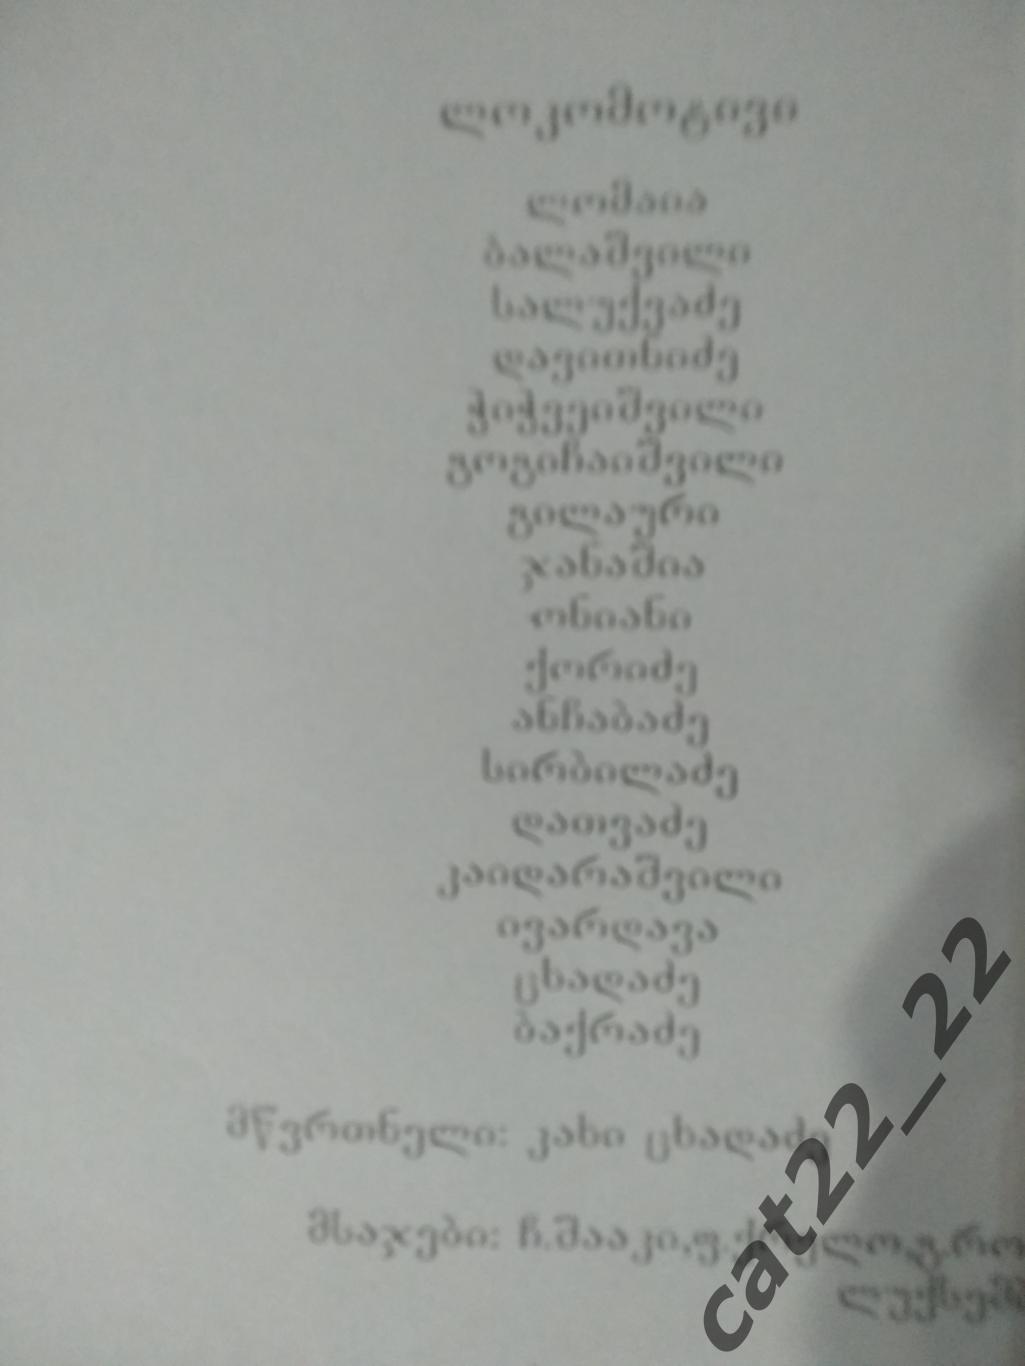 ლოკომოტივი
ლომაია
ბალაშვილი
სალუქვაძე
დავითნიძე
ჭიჭვეიშვილი
გოგიჩაიშვილი
გილაური
ჯანაშია
ონიანი
ქორიძე
ანჩაბაძე
სირბილაძე
დათვაძე
კაიდარაშვილი
ივარდავა
ცხადაძე
ბაქრაძე
მწვრთნელი: კახი ცხადაძე
მსაჯები: ჩ.შააკი,ფ.
cat22_22